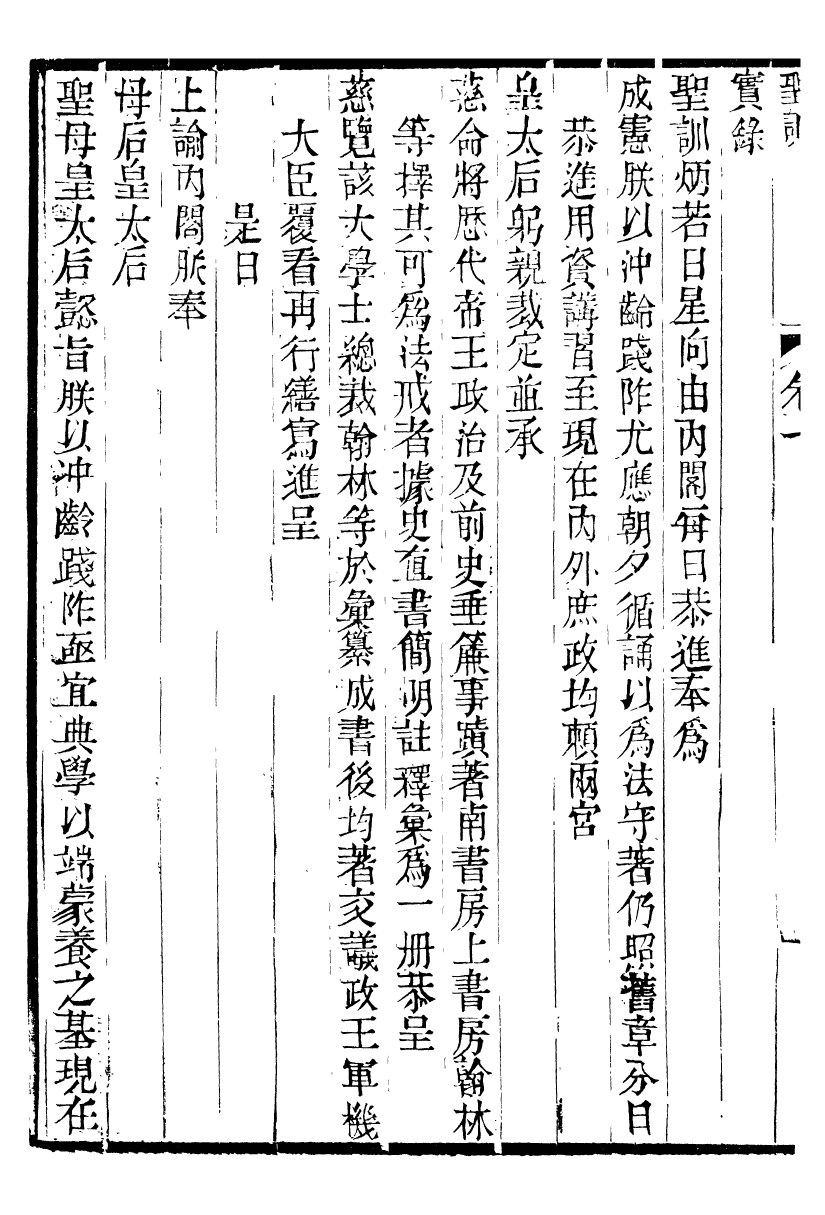 實錄
聖訓炳若日星向由內閣每日恭進奉爲
成憲朕以沖齡踐阼尤應朝夕循誦以爲法守著仍照舊章分日
恭進用資講習至現在內外庶政均賴兩宮
皇太后躬親裁定並承
慈命將歷代帝王政治及前史垂簾事蹟著南書房上書房翰林
等擇其可爲法戒者據史直書簡明註釋彙爲一册恭呈
慈覽該大學士總裁翰林等於彙纂成書後均著交議政王軍機
大臣覆看再行繕寫進呈
是日
上諭內閣朕奉
母后皇太后
聖母皇太后懿旨朕以沖齡踐阼亟宜典學以端蒙養之基現在